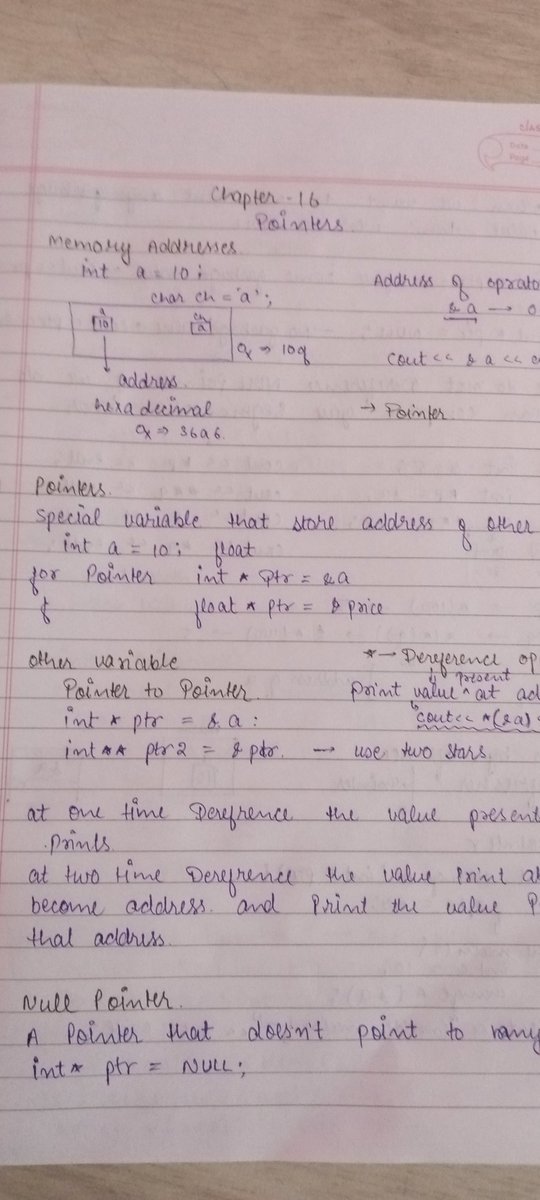 Clas
Date
Page
Chapter - 16
Pointers
Memory Addresses
int a = 10;
char ch = 'a';
Address of oprato
& a →
a
10
ch
a
address
hexa decimal
cout << & a <<
→ Pointer
Pointers.
Special variable that store address of other
int a = 10; float
for Pointer int * Ptr = & a
float * ptr = & price
other variable
* → Dereference op
Pointer to Pointer.
print value ^ present at ad
int * ptr = & a :
cout << *(&a)
int ** ptr 2 = & ptr. → use two stars.
at one time Derefrence the value present
prints
at two time Derefrence the value Print
become address. and Print the value P
that address.
Null Pointer.
A Pointer that doesn't point to
int * ptr = NULL;